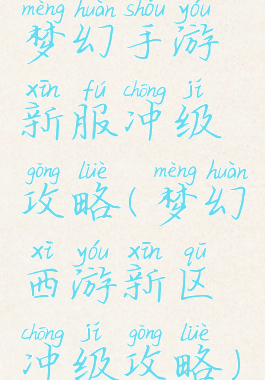 mèng huàn shǒu yóu
梦幻手游
xīn fú chōng jí
新服冲级
gōng lüè mèng huàn
攻略(梦幻
xī yóu xīn qū
西游新区
chōng jí gōng lüè
冲级攻略)